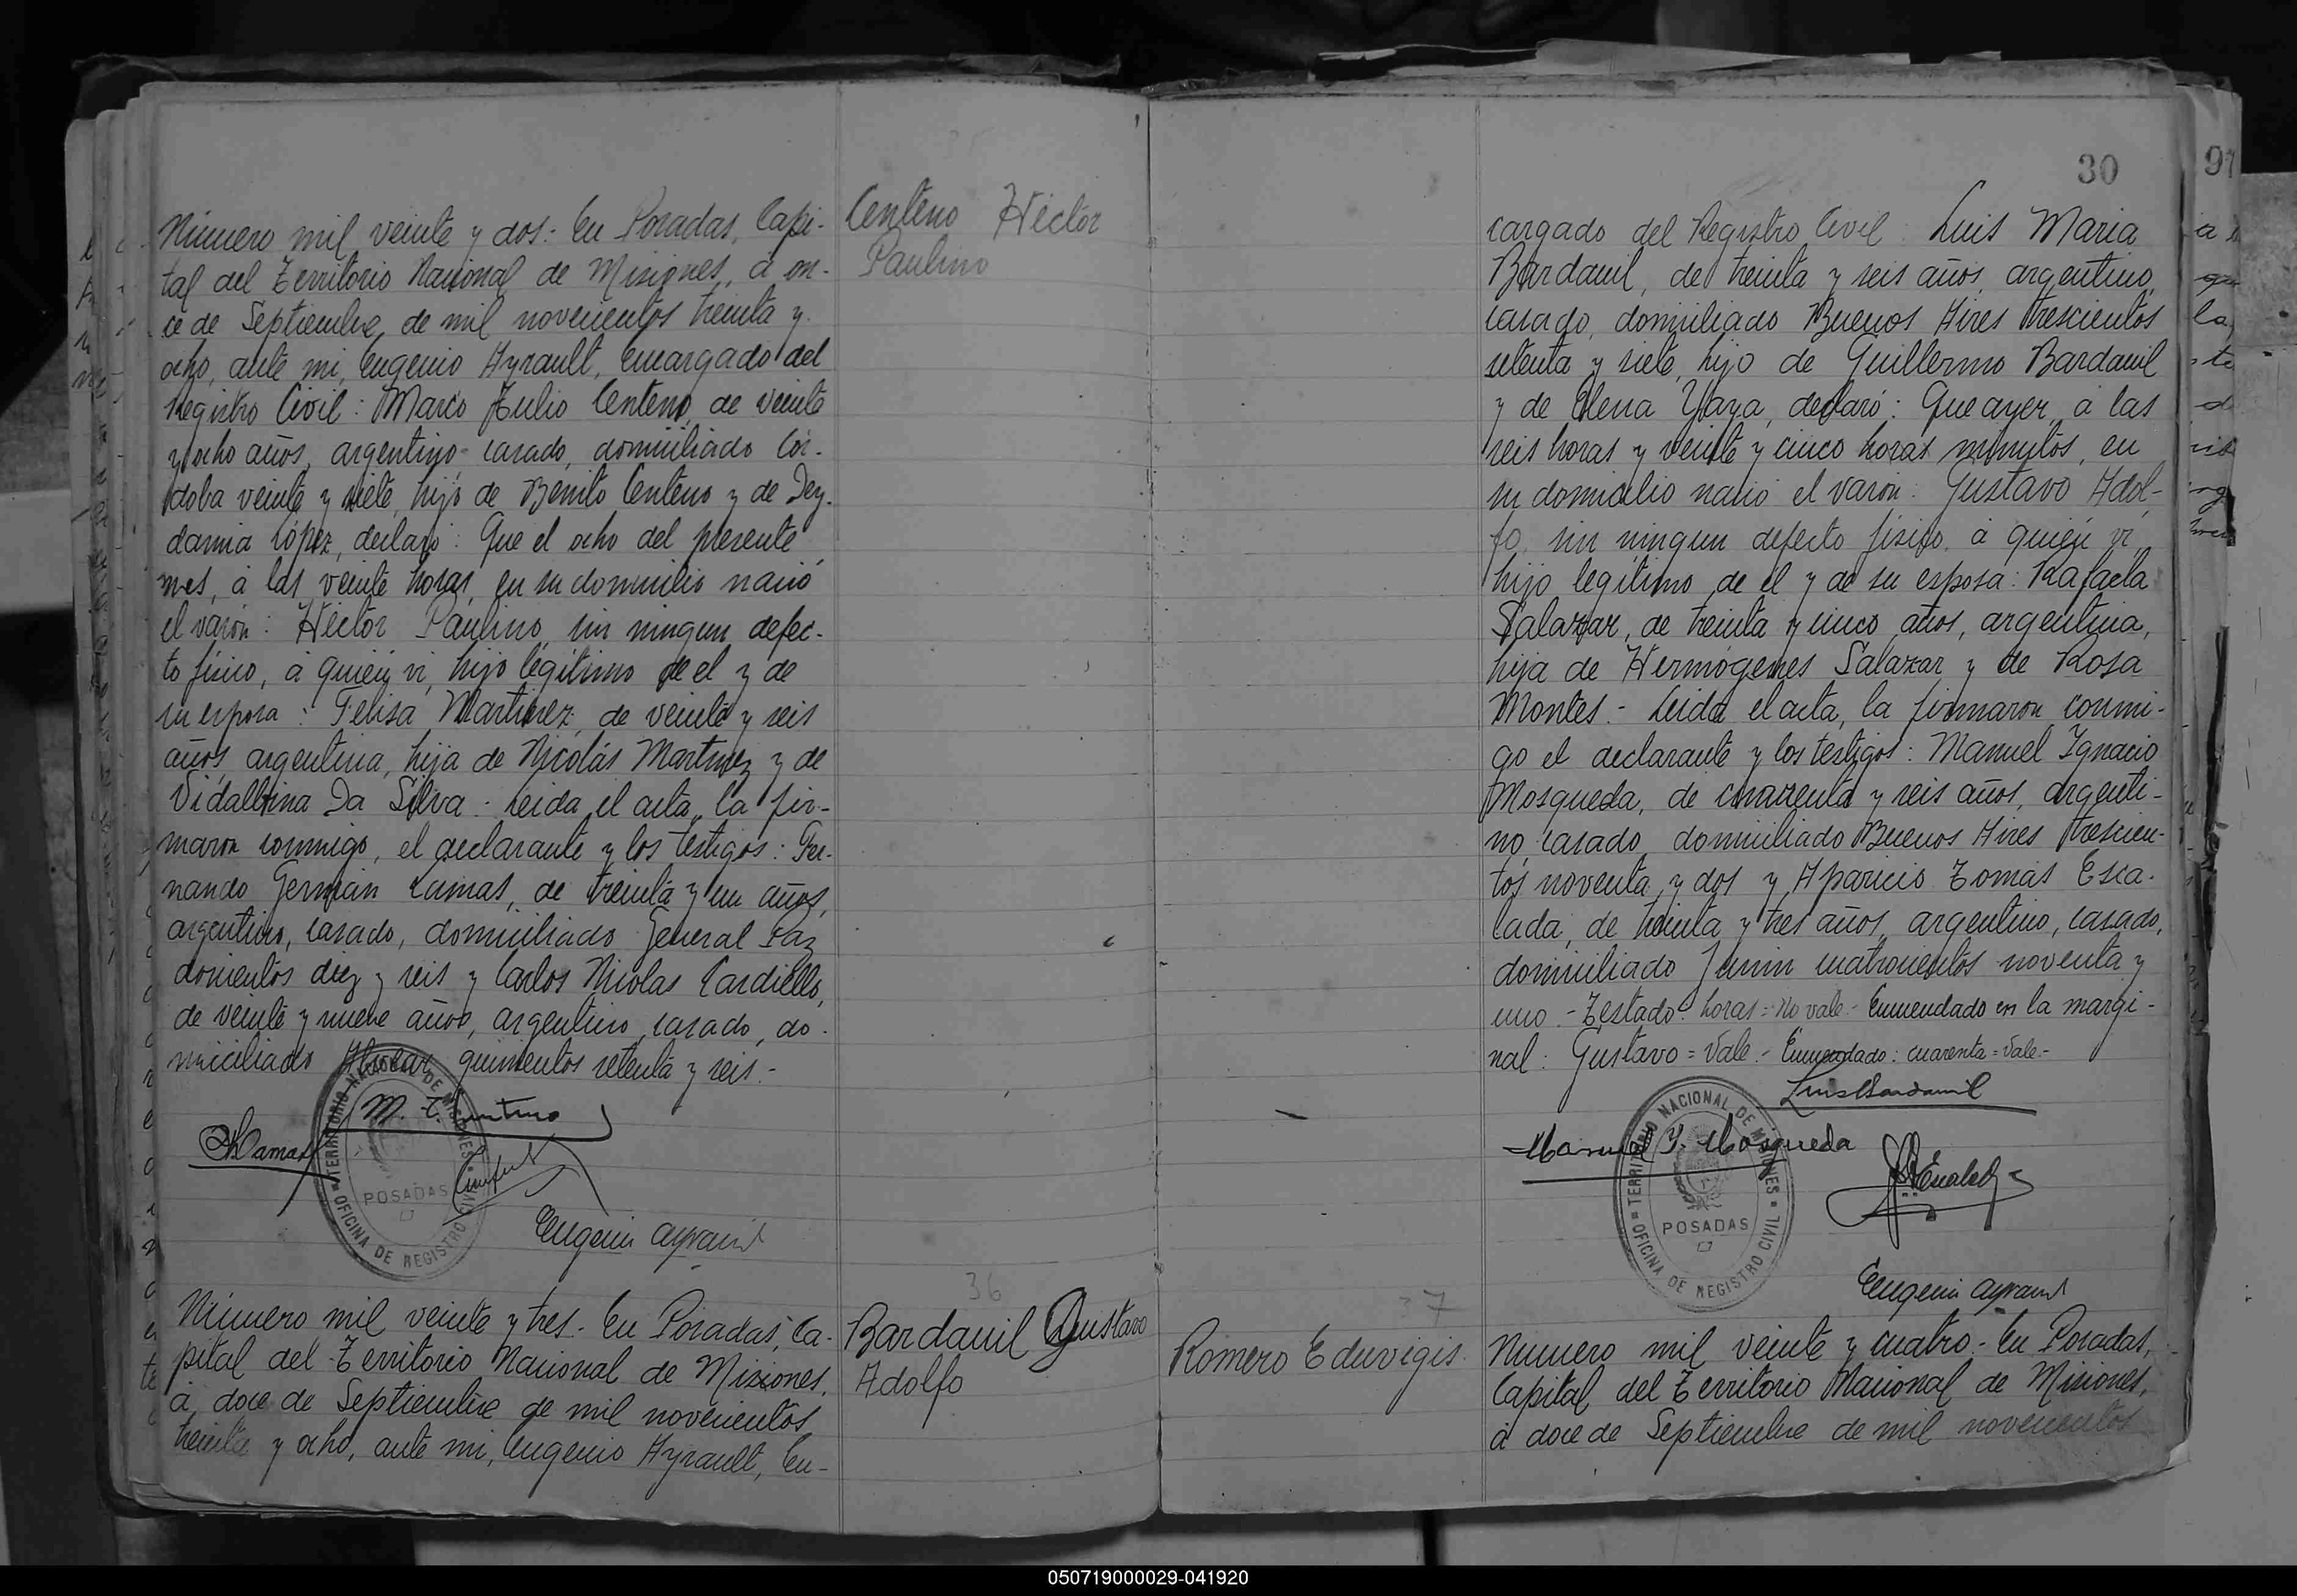 Centeno Héctor
Paulino
Número mil veinte y dos: En Posadas, Capi-
tal del Territorio Nacional de Misiones, á on-
ce de Septiembre de mil novecientos treinta y
ocho, ante mi, Eugenio Ayrault, Encargado del
Registro Civil: Marco Tulio Centeno, de veinte
y ocho años, argentino, casado, domiciliado Cór-
doba veinte y siete, hijo de Benito Centeno y de Dey-
damia López, declaró: Que el ocho del presente
mes, á las veinte horas, en su domicilio nació
el varón: Héctor Paulino, sin ningun defec-
to físico, á quién vi, hijo legítimo de el y de
su esposa: Felisa Martinez, de veinte y seis
años, argentina, hija de Nicolás Martinez y de
Vidalbina Da Silva: Leida el acta, la fir-
maron conmigo, el declarante y los testigos: Fer-
nando Germán Lamas, de treinta y un años,
argentino, casado, domiciliado General Paz
doscientos diez y seis y Carlos Nicolas Cardiello,
de veinte y nueve años, argentino, casado, do-
miciliado Alvear quinientos setenta y seis.-
M. T. Centeno
Lamas
TERRITORIO NACIONAL DE MISIONES
POSADAS
OFICINA DE REGISTRO CIVIL
Eugenio Ayrault
36
Bardauil Gustavo
Adolfo
Número mil veinte y tres.- En Posadas, Ca-
pital del Territorio Nacional de Misiones,
á doce de Septiembre de mil novecientos
treinta y ocho, ante mi, Eugenio Ayrault, En-
30
cargado del Registro Civil: Luis Maria
Bardauil, de treinta y seis años, argentino,
casado, domiciliado Buenos Aires trescientos
setenta y siete, hijo de Guillermo Bardauil
y de Elena Yaya, declaró: Que ayer, á las
seis horas y veinte y cinco horas minutos, en
su domicilio nació el varón: Gustavo Adol-
fo, sin ningun defecto físico, á quién vi,
hijo legítimo de el y de su esposa: Rafaela
Salazar, de treinta y cinco años, argentina,
hija de Hermógenes Salazar y de Rosa
Montes.- Leida el acta, la firmaron conmi-
go el declarante y los testigos: Manuel Ignacio
Mosqueda, de cuarenta y seis años, argenti-
no, casado, domiciliado Buenos Aires trescien-
tos noventa y dos y Aparicio Tomás Esca-
lada, de treinta y tres años, argentino, casado,
domiciliado Junin cuatrocientos noventa y
uno.- Testado: horas = No vale.- Enmendado en la margi-
nal: Gustavo = Vale.- Enmendado: cuarenta = Vale.-
Luis M Bardauil
Manuel I. Mosqueda
Escalada
TERRITORIO NACIONAL DE MISIONES
POSADAS
OFICINA DE REGISTRO CIVIL
Eugenio Ayrault
37
Romero Eduvigis
Numero mil veinte y cuatro.- En Posadas,
Capital del Territorio Nacional de Misiones,
á doce de Septiembre de mil novecientos
050719000029-041920